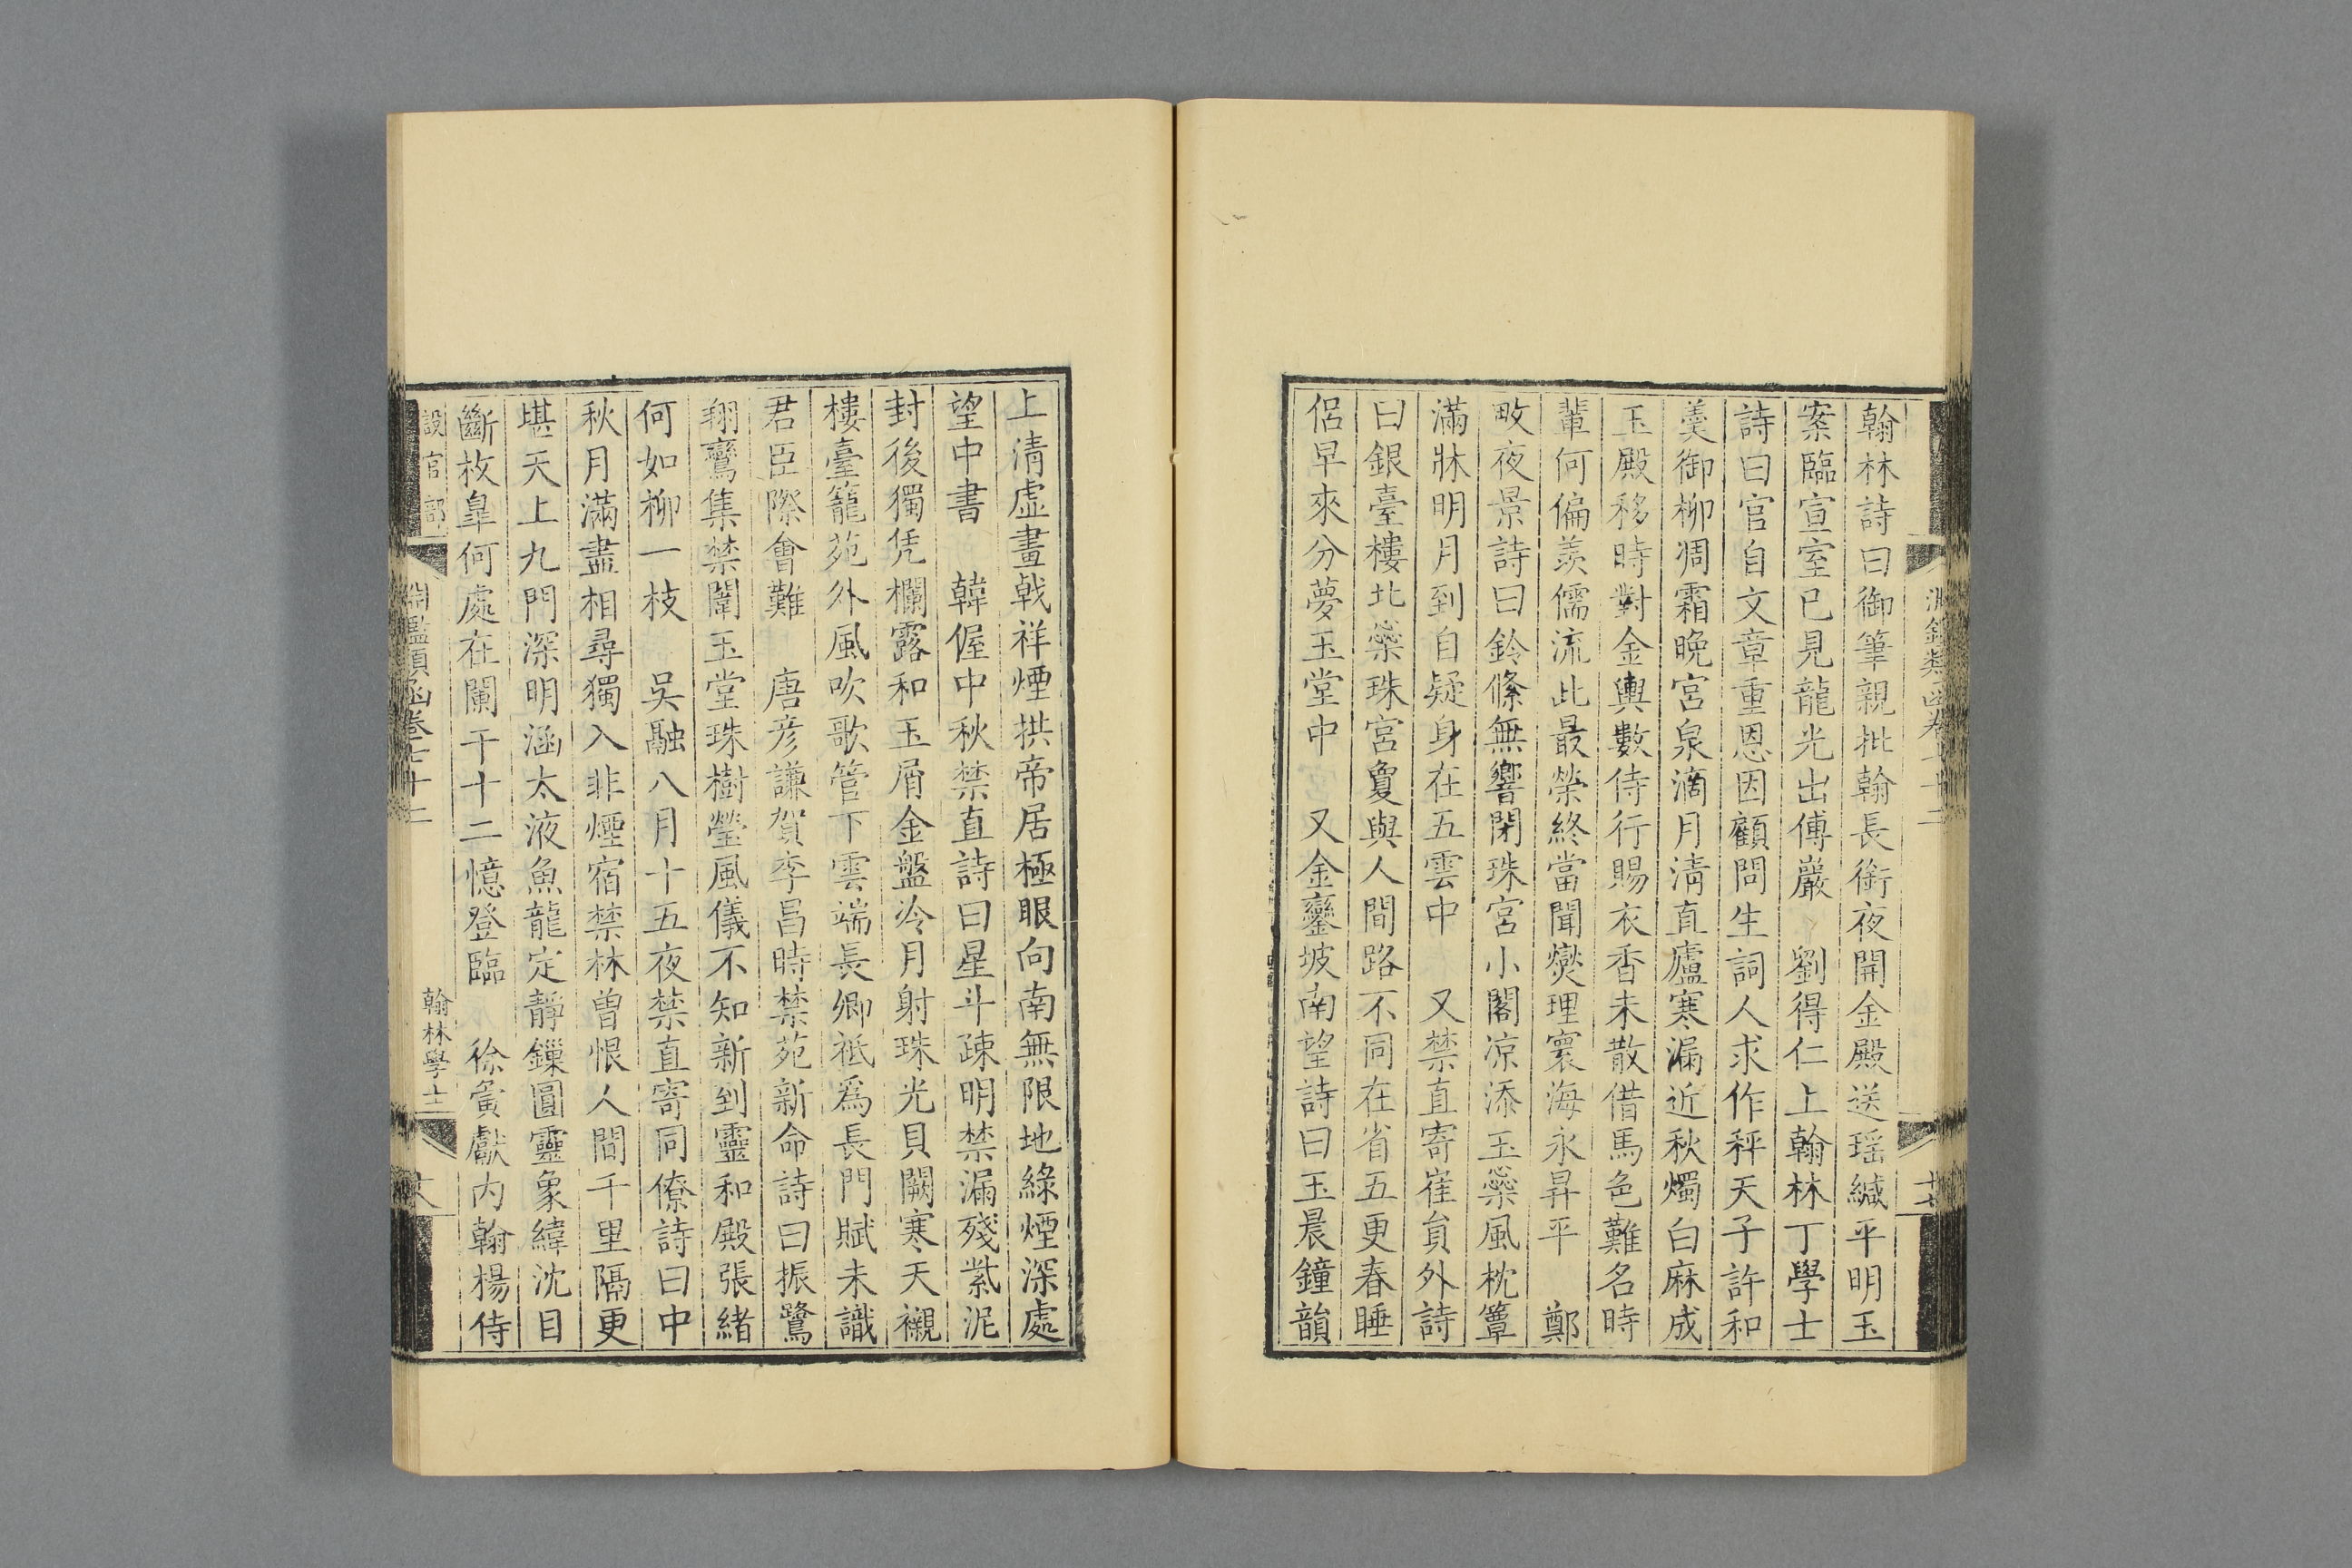 翰林詩曰御筆親批翰長銜夜開金殿送瑶緘平明玉
案臨宣室已見龍光出傅巖　劉得仁上翰林丁學士
詩曰官自文章重恩因顧問生詞人求作秤天子許和
羹御柳凋霜晚宮泉滴月清直廬寒漏近秋燭白麻成
玉殿移時對金輿數侍行賜衣香未散借馬色難名時
輩何偏羨儒流此最榮終當聞燮理寰海永昇平　鄭
畋夜景詩曰鈴絛無響閉珠宮小閣凉添玉蘂風枕簟
滿牀明月到自疑身在五雲中　又禁直寄崔貟外詩
曰銀臺樓北蘂珠宮夐與人間路不同在省五更春睡
侶早來分夢玉堂中　又金鑾坡南望詩曰玉晨鐘韻
上清虛畫戟祥煙拱帝居極眼向南無限地綠煙深處
望中書　韓偓中秋禁直詩曰星斗疎明禁漏殘紫泥
封後獨凭欄露和玉屑金盤冷月射珠光貝闕寒天襯
樓臺籠苑外風吹歌管下雲端長卿祗爲長門賦未識
君臣際會難　唐彥謙賀李昌時禁苑新命詩曰振鷺
翔鸞集禁闈玉堂珠樹瑩風儀不知新到靈和殿張緒
何如柳一枝　吳融八月十五夜禁直寄同僚詩曰中
秋月滿盡相尋獨入非煙宿禁林曾恨人間千里隔更
堪天上九門深明涵太液魚龍定靜鏁圓靈象緯沈目
斷枚臯何處在闌干十二憶登臨　徐夤獻内翰楊侍
設官部　淵鑑類函卷七十二　翰林學士